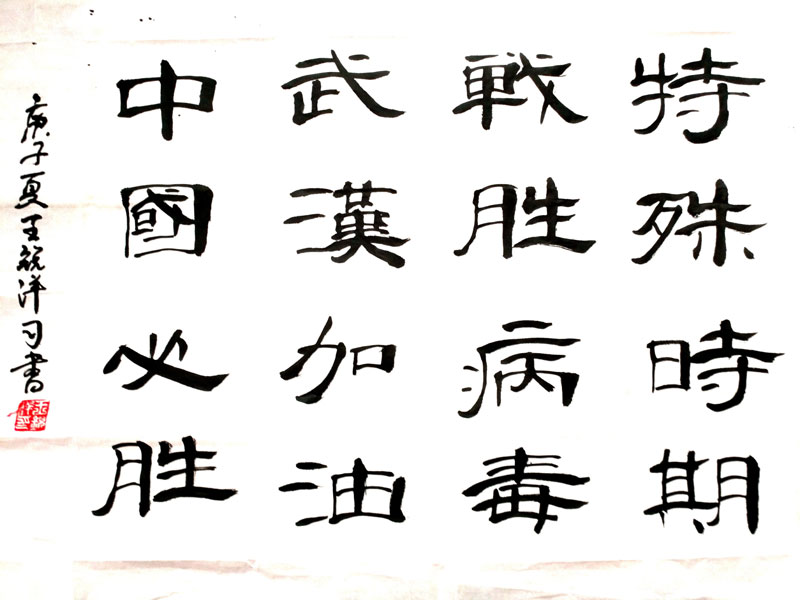 特殊時期
戦胜病毒
武漢加油
中國必胜
庚子夏王毓洋习書